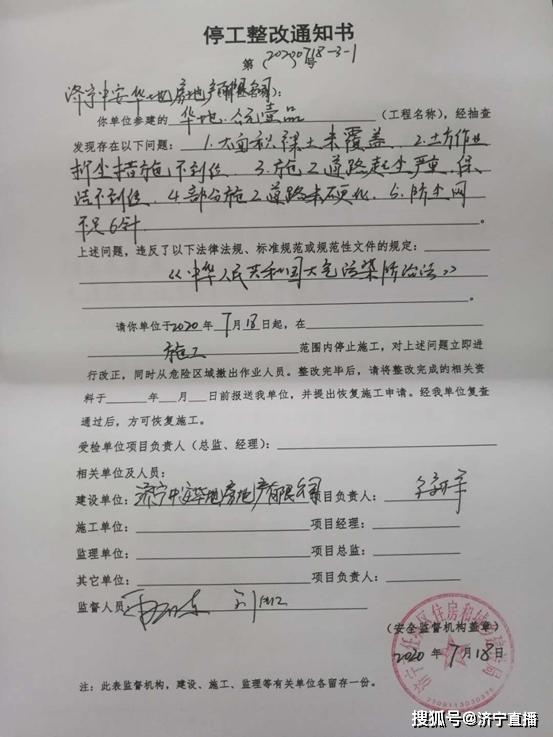 停工整改通知书
第 20200718-3-1 号
济宁中安华地房地产有限公司:
你单位参建的 华地·公元壹品 (工程名称),经抽查
发现存在以下问题: 1.大面积裸土未覆盖、2.土方作业
抑尘措施不到位、3.施工道路起尘严重、保
洁不到位、4.部分施工道路未硬化、5.防尘网
不足6针 。
上述问题,违反了以下法律法规、标准规范或规范性文件的规定:
《中华人民共和国大气污染防治法》
。
请你单位于2020年7月18日起,在
施工 范围内停止施工,对上述问题立即进
行改正,同时从危险区域撤出作业人员。整改完毕后,请将整改完成的相关资
料于 年 月 日前报送我单位,并提出恢复施工申请。经我单位复查
通过后,方可恢复施工。
受检单位项目负责人(总监、经理):
相关单位及人员:
建设单位: 济宁中安华地房地产有限公司 项目负责人:
施工单位: 项目经理:
监理单位: 项目总监:
其它单位: 项目负责人:
监督人员:
(安全监督机构盖章)
2020 年 7 月 18 日
注:此表监督机构,建设、施工、监理等有关单位各留存一份。
搜狐号@济宁直播